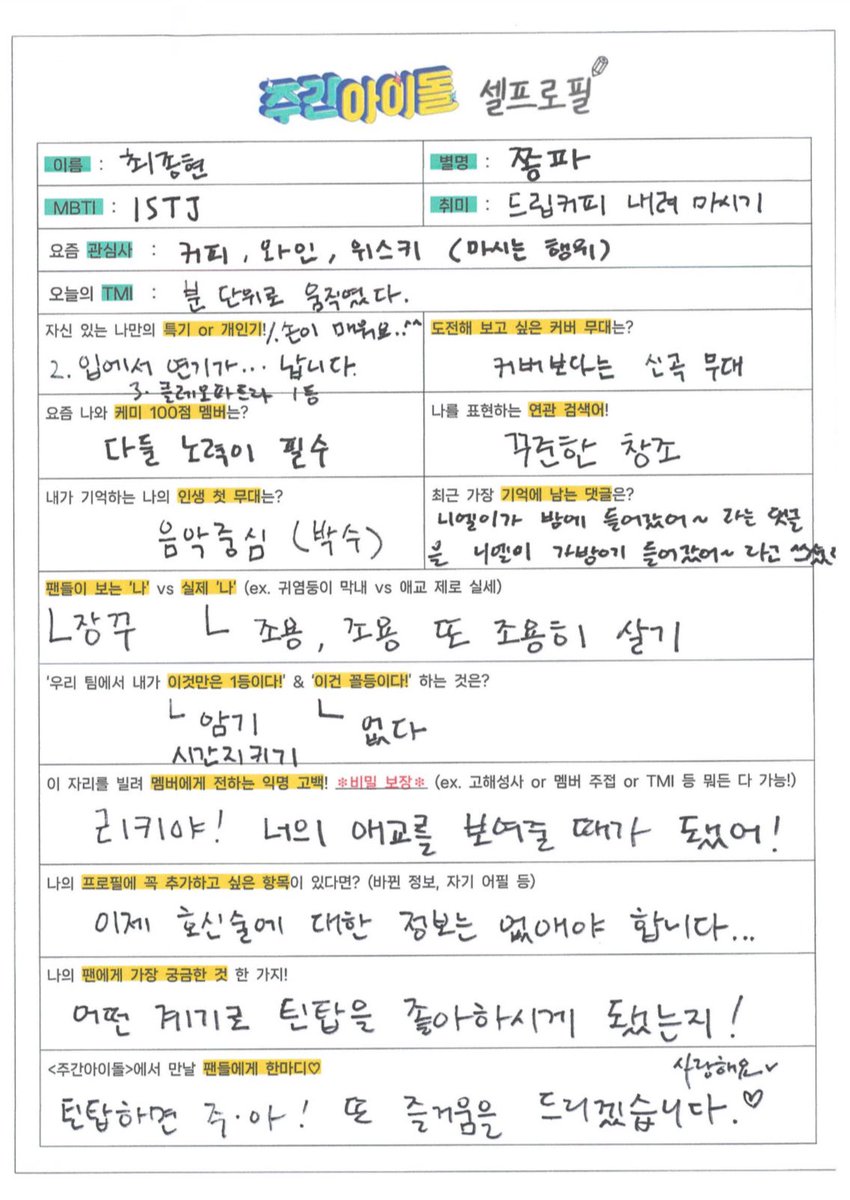 주간아이돌 셀프로필
이름 : 최종현 별명 : 쫑파
MBTI : ISTJ 취미 : 드립커피 내려 마시기
요즘 관심사 : 커피, 와인, 위스키 (마시는 행위)
오늘의 TMI : 분 단위로 움직였다.
자신 있는 나만의 특기 or 개인기! 1. 손이 매워요..^^
2. 입에서 연기가... 납니다.
3. 클레오파트라 1등
도전해 보고 싶은 커버 무대는?
커버보다는 신곡 무대
요즘 나와 케미 100점 멤버는?
다들 노력이 필수
나를 표현하는 연관 검색어!
꾸준한 창조
내가 기억하는 나의 인생 첫 무대는?
음악중심 (박수)
최근 가장 기억에 남는 댓글은?
니엘이가 밤에 들어갔어~ 라는 댓글
을 니엘이 가방에 들어갔어~ 라고
팬들이 보는 '나' vs 실제 '나' (ex. 귀염둥이 막내 vs 애교 제로 실세)
ㄴ장꾸 ㄴ 조용, 조용 또 조용히 살기
'우리 팀에서 내가 이것만은 1등이다!' & '이건 꼴등이다!' 하는 것은?
ㄴ 암기 ㄴ 없다
시간지키기
이 자리를 빌려 멤버에게 전하는 익명 고백! ※비밀 보장※ (ex. 고해성사 or 멤버 주접 or TMI 등 뭐든 다 가능!)
리키야! 너의 애교를 보여줄 때가 됐어!
나의 프로필에 꼭 추가하고 싶은 항목이 있다면? (바뀐 정보, 자기 어필 등)
이제 호신술에 대한 정보는 없애야 합니다...
나의 팬에게 가장 궁금한 것 한 가지!
어떤 계기로 틴탑을 좋아하시게 됐는지!
<주간아이돌>에서 만날 팬들에게 한마디♡
사랑해요
틴탑하면 주·아! 또 즐거움을 드리겠습니다.♡